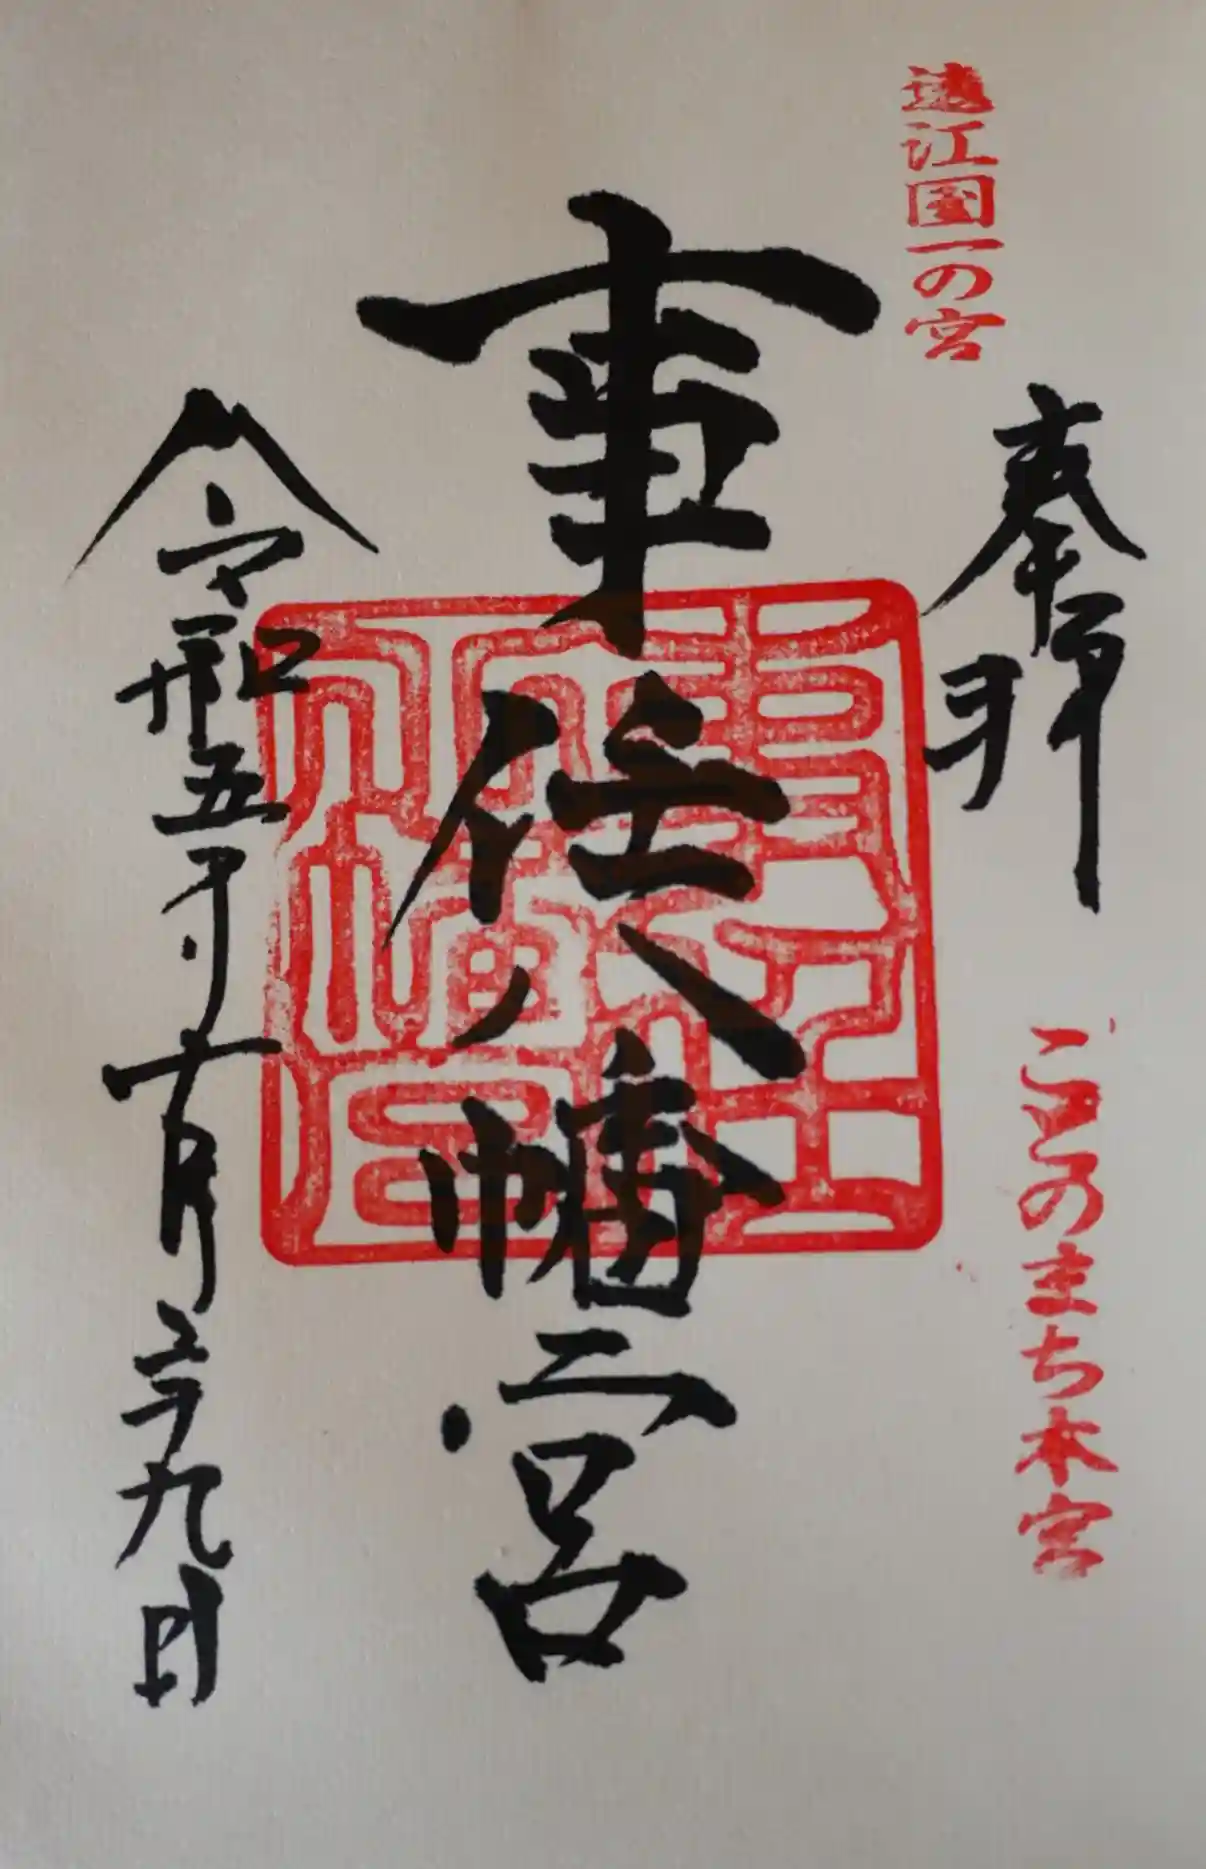 遠江国一の宮
奉拝
ことのまち本宮
事任八幡宮
令和五年十月二十九日